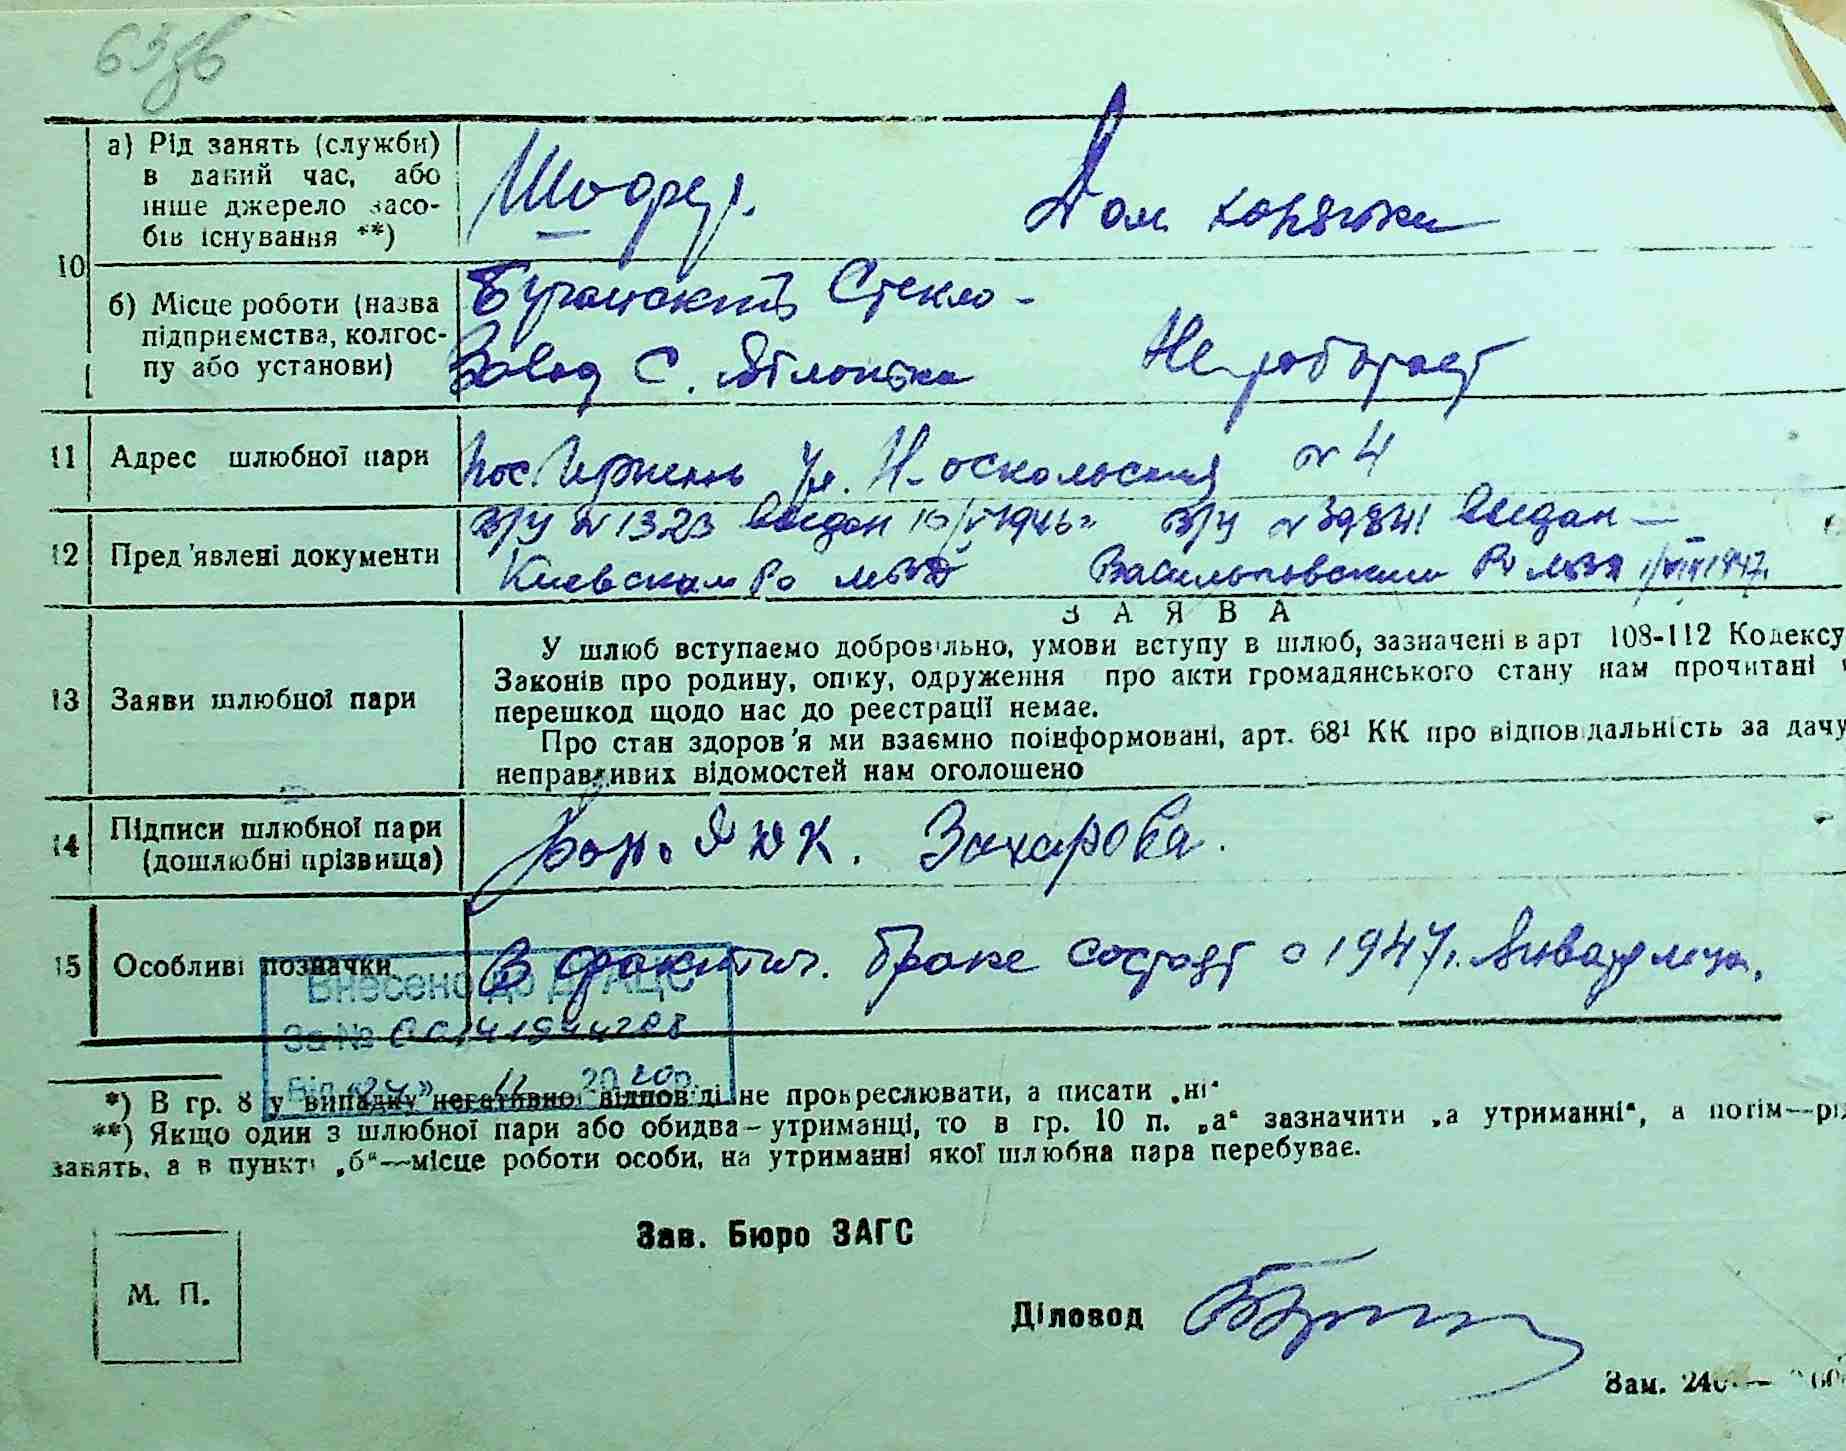 63зв
а) Рід занять (служби)
в даний час, або
інше джерело засо-
бів існування **)
Шофер.
Дом хозяйка
10
б) Місце роботи (назва
підприємства, колгос-
пу або установи)
Бучанский Стекло-
Завод С.
Не работает
11 Адрес шлюбної пари
пос. Ирпень ул. Н-оскольская № 4
12 Пред'явлені документи
В/У № 1323 выдан 1946г
Киевским Ро МВД
В/У № 39841 выдан —
Васильковским Ро МВД 1/VIII 1947.
ЗАЯВА
13 Заяви шлюбної пари
У шлюб вступаємо добровільно, умови вступу в шлюб, зазначені в арт 108-112 Кодексу
Законів про родину, опіку, одруження про акти громадянського стану нам прочитані
перешкод щодо нас до реєстрації немає.
Про стан здоров'я ми взаємно поінформовані, арт. 68¹ КК про відповідальність за дачу
неправдивих відомостей нам оголошено
14 Підписи шлюбної пари
(дошлюбні прізвища)
Захарова.
15 Особливі позначки
В фактич. браке состоят с 1947г. Января м-ца.
Внесено до ДРАЦС
За №
Від «27» 11 2020р.
*) В гр. 8 у випадку негативної відповіді не прокреслювати, а писати „ні“
**) Якщо один з шлюбної пари або обидва—утриманці, то в гр. 10 п. „а“ зазначити „а утриманні“, а потім—рід
занять, а в пункті „б“—місце роботи особи, на утриманні якої шлюбна пара перебуває.
Зав. Бюро ЗАГС
М. П.
Діловод
Зам.